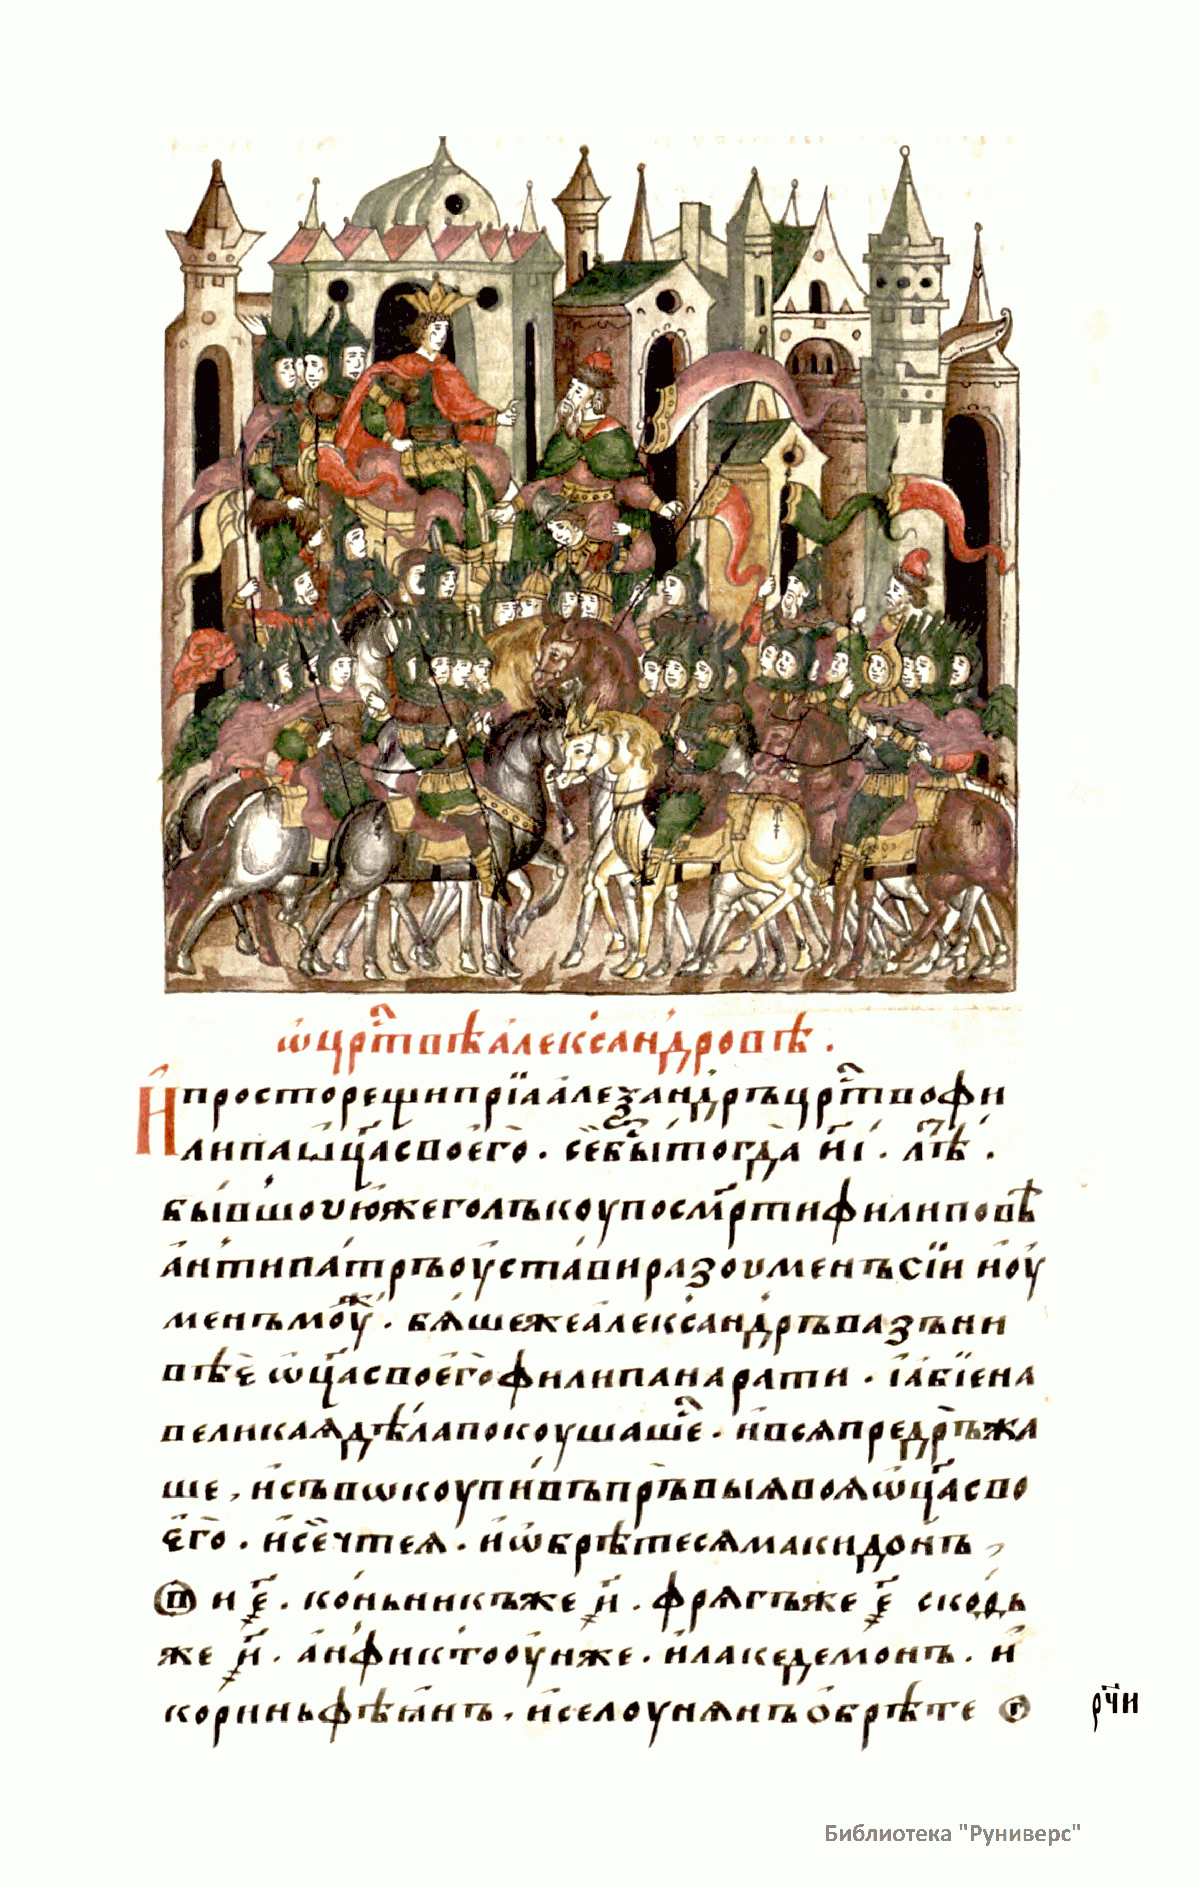 ѡ҆ црⷭ҇твѣ а҆леѯандровѣ .
И҆ простореци прїѧ а҆леѯандръ црⷭ҇тво фи
липа ѿц҃а своего̀ . се бы́ тогда и҃і . лѣⷮ .
бы́вшоую же голъкоу по смр҃ти филиповѣ
а҆нтипа́тръ оу҆ста́ви разоуменъ сїи и҆ оу
менъ моу́ⷤ . бѧ́ше же а҆леѯандръ вазъни
въ є҆ ѿц҃а своего̀ филипа на рати . ꙗ҆вїе на
великаѧ дѣ́ла покоушашеⷭ҇ . и҆ всѧ предръжа
ше , и҆ съвѡкоупи́въ пръвыѧ воѧ ѿц҃а сво
є҆го̀ . и҆ се́чте ѧ . и҆ ѡ҆брѣтесѧ македонъ ,
ни ҂є҃ . ко́ньникъ же ҂и҃ . фрѧгъ же ҂є҃ скоⷣ
же ҂и҃ . а҆нфиктооу́н же . и҆ лакедемонъ . и҆
кориньфѣ́ꙗнъ . и҆ селоунѧнъ о҆брѣте
рч҃и
Библиотека "Руниверс"